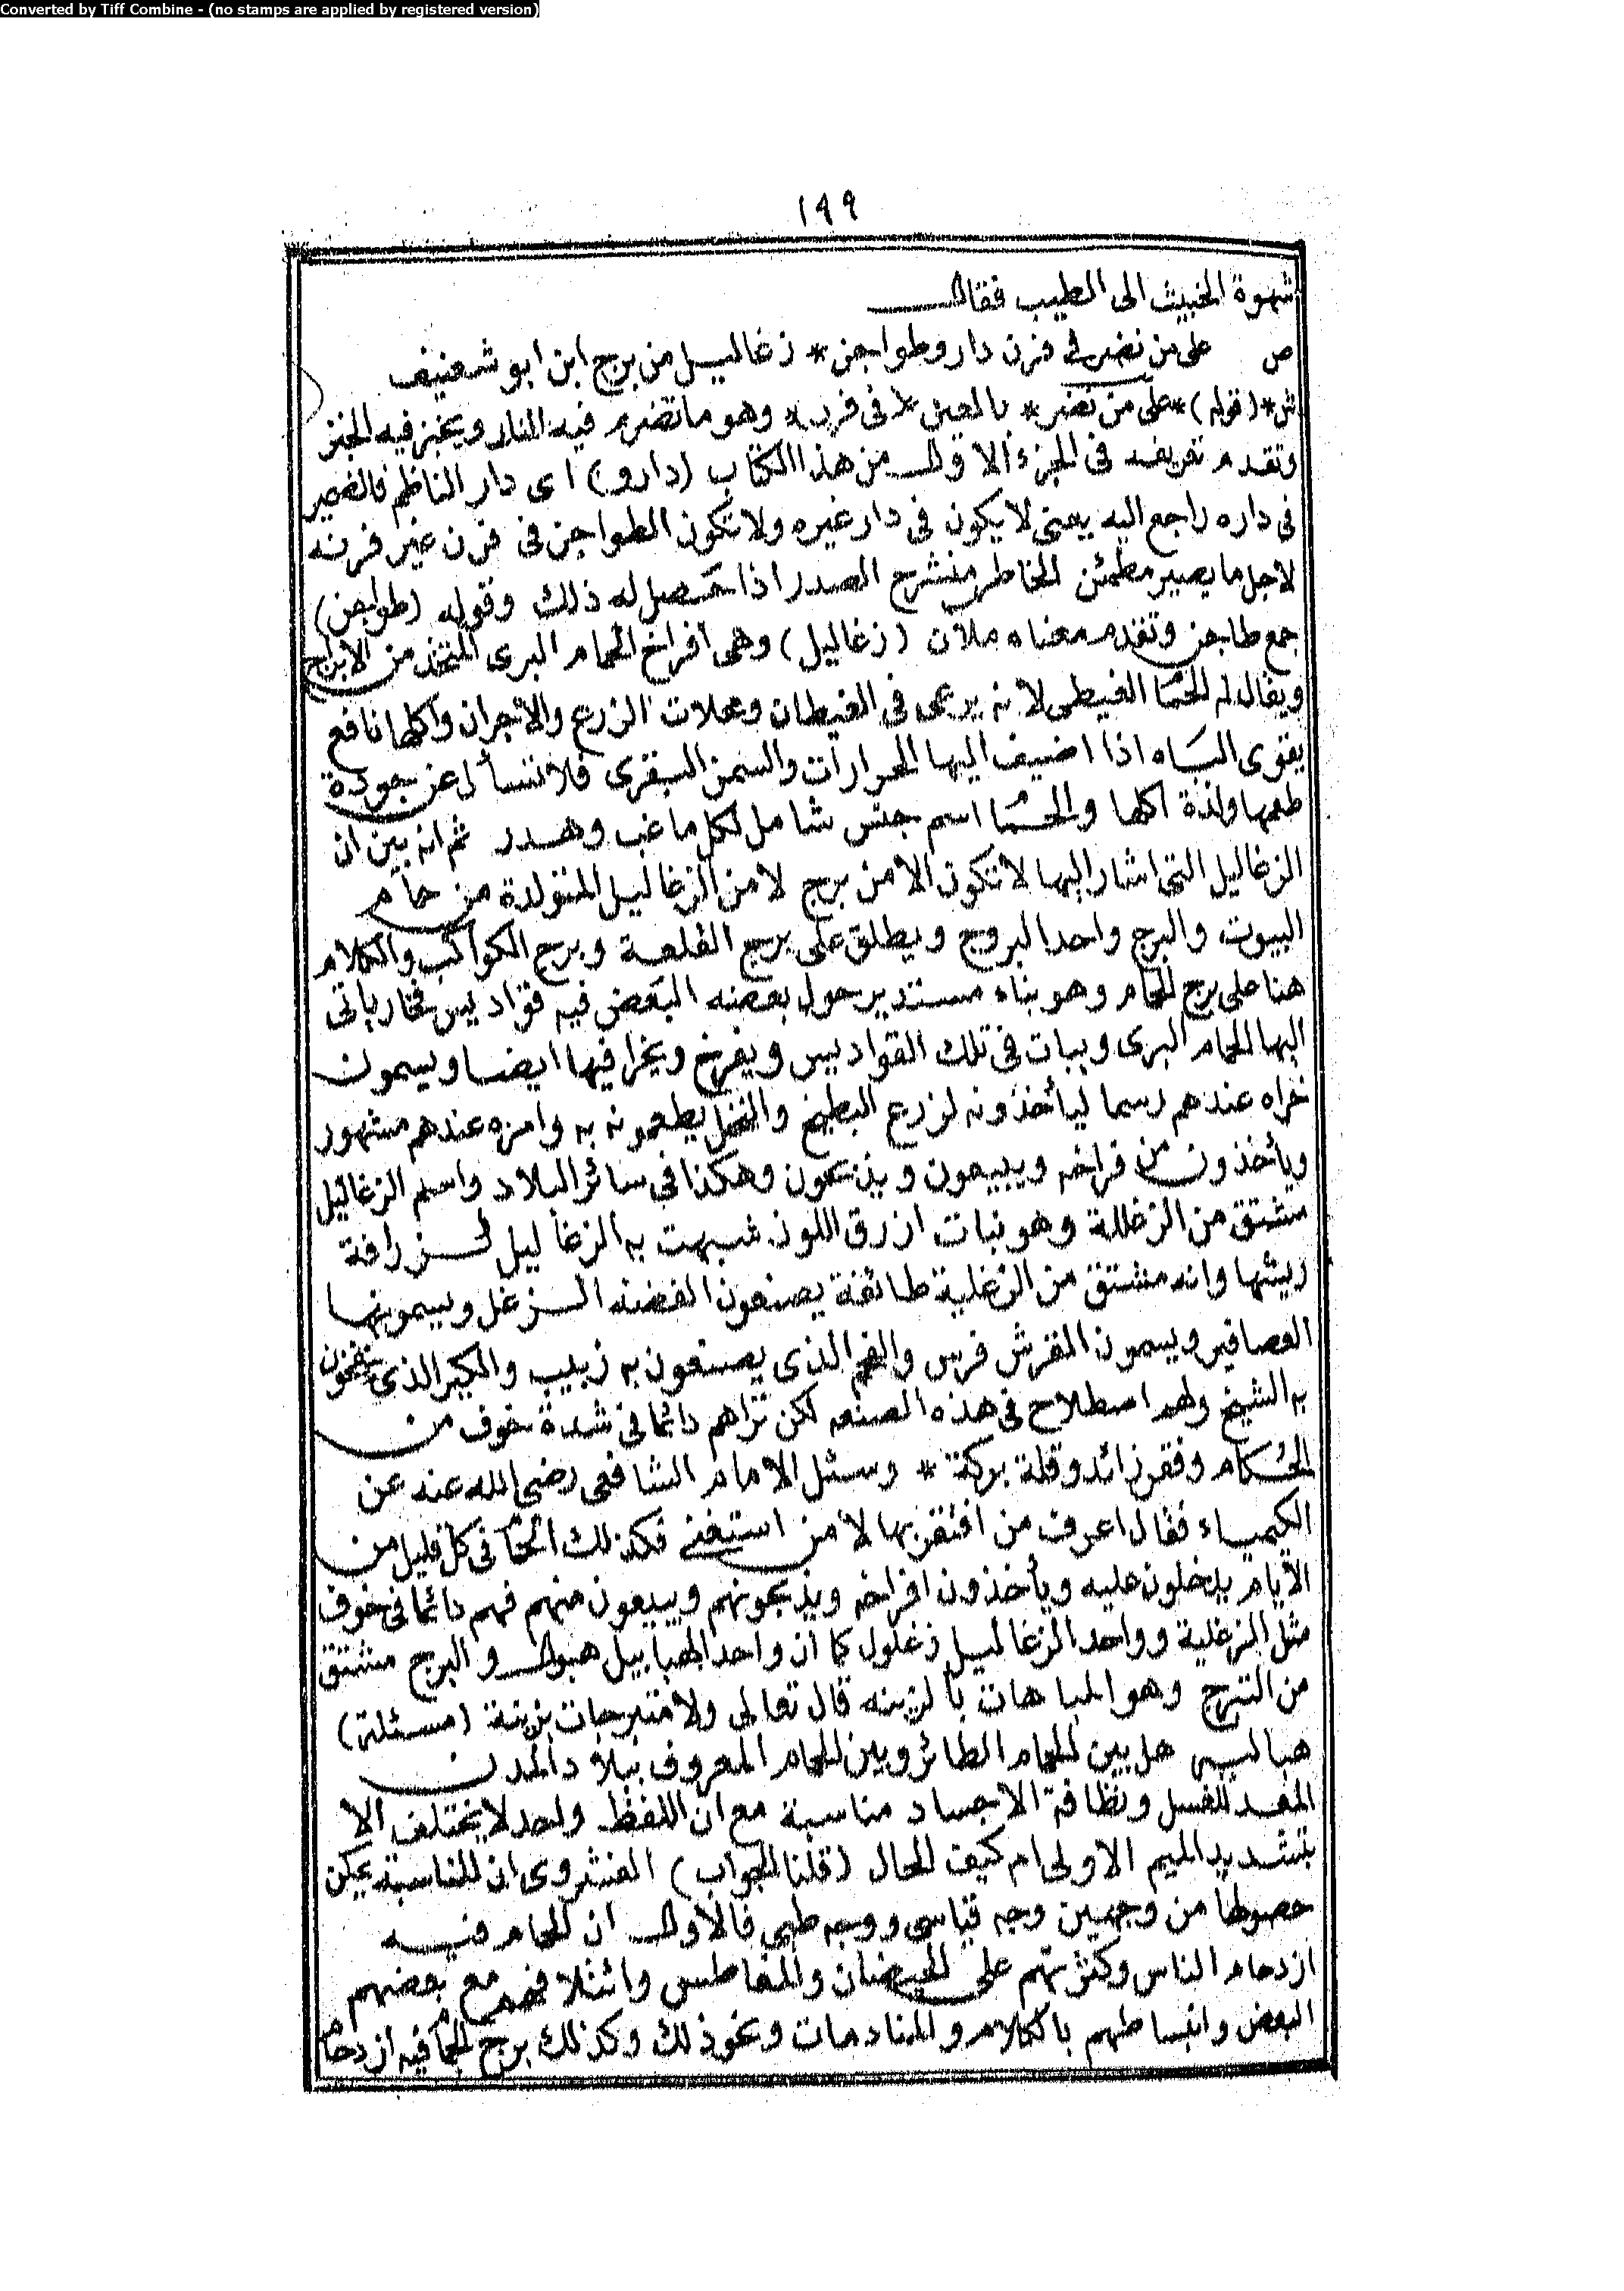 Converted by Tiff Combine - (no stamps are applied by registered version)
١٩٩
شهوة الخبيث الى الطيب فقال
ص على من نضر فى فرن دارو طواجن * زغاليل من برج ابن ابو شعنيف
ش * (قوله) * على من نضر * بالعين * فى فرن * وهو ما تضرم فيه النار ويخبز فيه الخبز
وتقدم تعريفه فى الجزء الاول من هذا الكتاب (دارو) اى دار الناظم فالضمير
فى داره راجع اليه يعنى لا يكون فى دار غيره ولا تكون الطواجن فى فرن غير فرنه
لاجل ما يصير مطمئن الخاطر منشرح الصدر اذا حصل له ذلك وقوله (طواجن)
جمع طاجن وتقدم معناه ملآن (زغاليل) وهى افراخ الحمام البرى المتخذ من الابراج
ويقال له الحمام الغيطى لانه يرعى فى الغيطان ومحلات الزرع والاجران واكلها نافع
يقوى الباه اذا اضيف اليها الحرارات والسمن البقرى فلا تسأل عن جودة
طعمها ولذة اكلها والحمام اسم جنس شامل لكل ما عب وهدر ثم انه بين ان
الزغاليل التى اشار اليها لا تكون الا من برج لا من الزغاليل المتولدة من حمام
البيوت والبرج واحد البروج ويطلق على برج القلعة وبرج الكواكب والكلام
هنا على برج الحمام وهو بناء مستدير حول بعضه البعض فيه قواديس فخار ياتى
اليها الحمام البرى ويبات فى تلك القواديس ويفرخ ويخرا فيها ايضا ويسمون
خراه عندهم رسما ليأخذونه لزرع البطيخ والنخل يطعمونه به وامره عندهم مشهور
ويأخذون من فراخه ويبيعون ويذبحون وهكذا فى سائر البلاد واسم الزغاليل
مشتق من الزغللة وهو نبات ازرق اللون شبهت به الزغاليل لزرافة
ريشها وانه مشتق من الزغلية طائفة يصنعون الفضه الزغل ويسمونها
العصافير ويسمون المقرش فرس والفحم الذى يصنعون به زبيب والكير الذى ينفخون
به الشيخ ولهم اصطلاح فى هذه الصنعه لكن تراهم دائما فى شدة خوف من
الحكام وفقر زائد وقلة بركة * وسئل الامام الشافعى رضى الله عنه عن
الكيمياء فقال اعرف من افتقر بها لا من استغنى فكذلك الحمام فى كل قليل من
الأيام يدخلون عليه ويأخذون افراخه ويذبحونهم ويبيعون منهم فهم دائما فى خوف
مثل الزغلية وواحد الزغاليل زغلول كما ان واحد الهبابيل هبول والبرج مشتق
من التبرج وهو المباهات بالزينه قال تعالى ولا متبرجات بزينة (مسئلة)
هباليه هل بين الحمام الطائر وبين الحمام المعروف ببلاد المدن
المعد للغسل ونظافة الاجساد مناسبة مع ان اللفظ واحد لا يختلف الا
بتشديد الميم الاولى ام كيف الحال (قلنا الجواب) الفشروى ان المناسبة يمكن
حصولها من وجهين وجه قياسى ووجه طبى فالاول ان الحمام فيه
ازدحام الناس وكثرتهم على الحيضان والمغاطس وائتلافهم مع بعضهم
البعض وانبساطهم بالكلام والمنادمات ونحو ذلك وكذلك برج الحمام فيه ازدحام